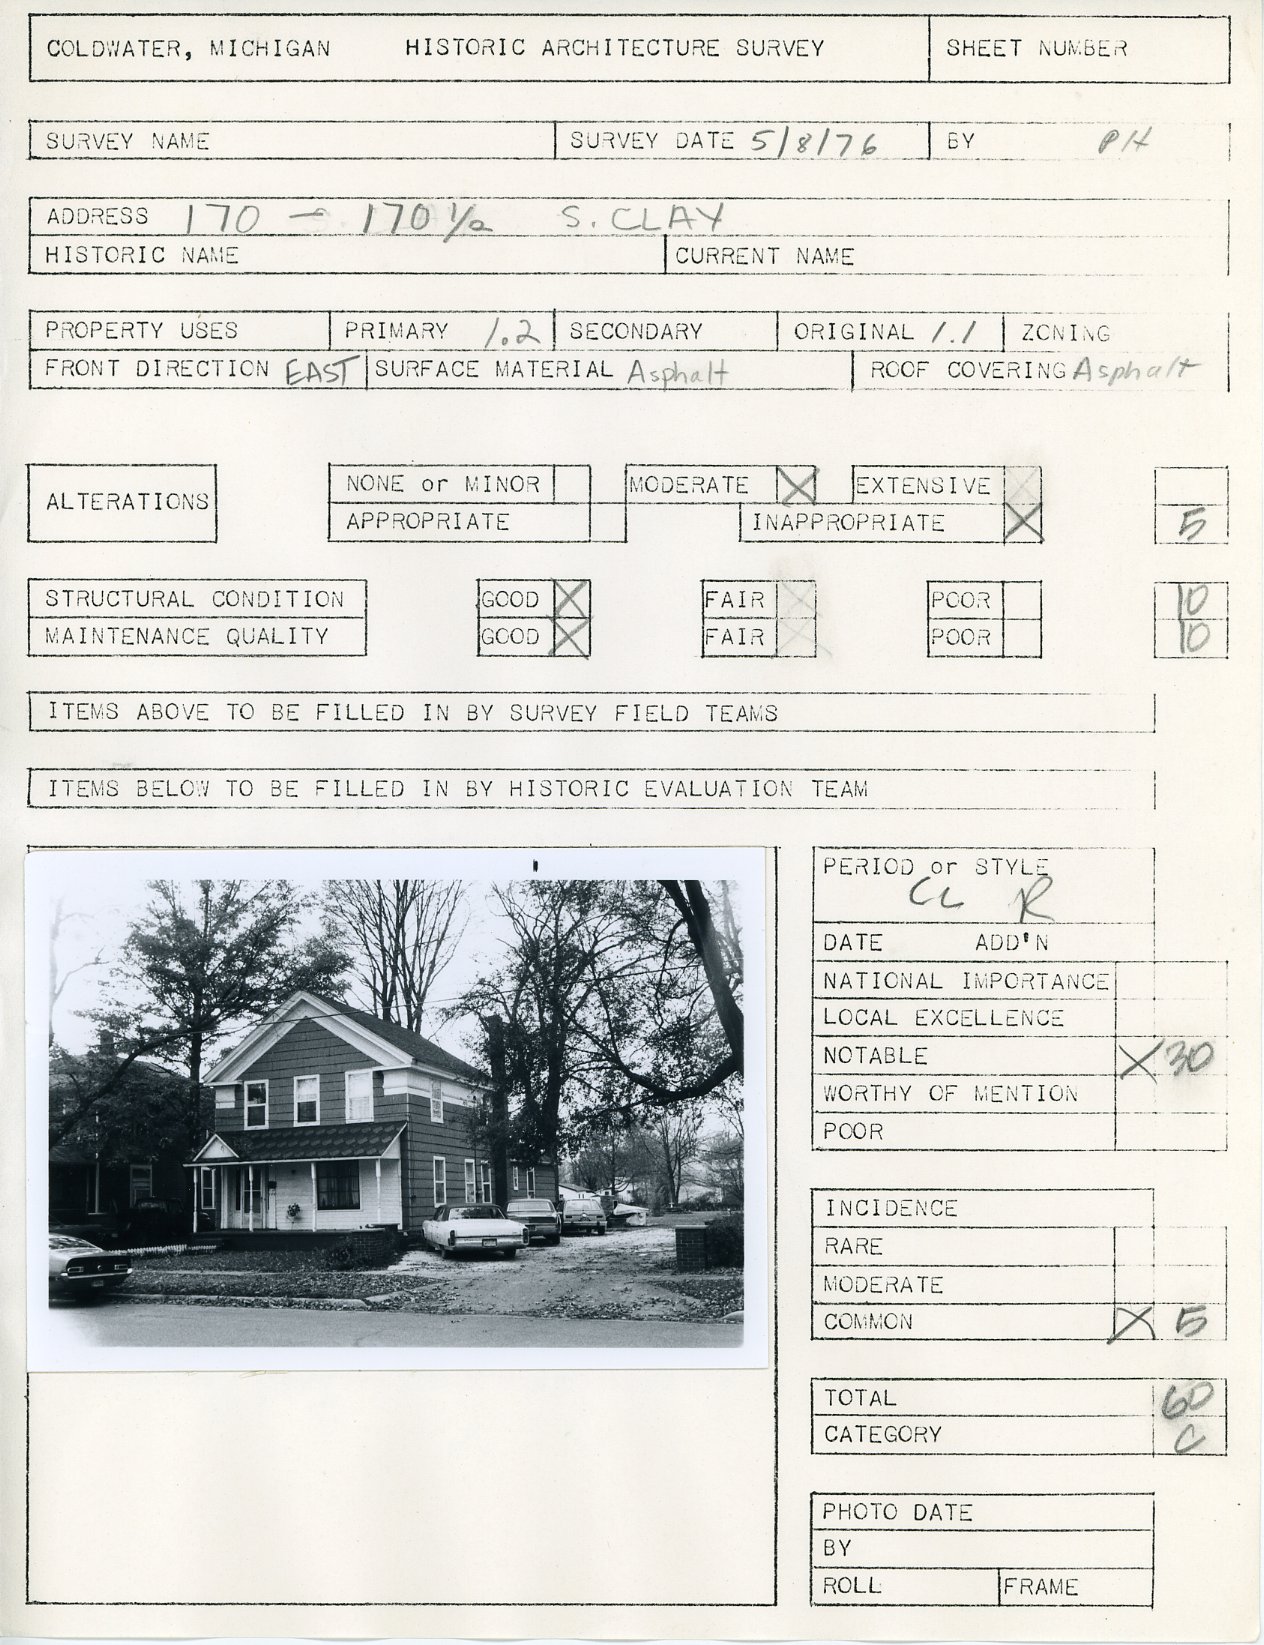 COLDWATER, MICHIGAN HISTORIC ARCHITECTURE SURVEY SHEET NUMBER
SURVEY NAME SURVEY DATE 5/8/76 BY PH
ADDRESS 170 – 170 1/2 S. CLAY
HISTORIC NAME CURRENT NAME
PROPERTY USES PRIMARY 1.2 SECONDARY ORIGINAL 1.1 ZONING
FRONT DIRECTION EAST SURFACE MATERIAL Asphalt ROOF COVERING Asphalt
ALTERATIONS NONE or MINOR MODERATE X EXTENSIVE
APPROPRIATE INAPPROPRIATE X 5
STRUCTURAL CONDITION GOOD X FAIR POOR 10
MAINTENANCE QUALITY GOOD X FAIR POOR 10
ITEMS ABOVE TO BE FILLED IN BY SURVEY FIELD TEAMS
ITEMS BELOW TO BE FILLED IN BY HISTORIC EVALUATION TEAM
PERIOD or STYLE
CL R
DATE ADD'N
NATIONAL IMPORTANCE
LOCAL EXCELLENCE
NOTABLE X 30
WORTHY OF MENTION
POOR
INCIDENCE
RARE
MODERATE
COMMON X 5
TOTAL 60
CATEGORY C
PHOTO DATE
BY
ROLL FRAME